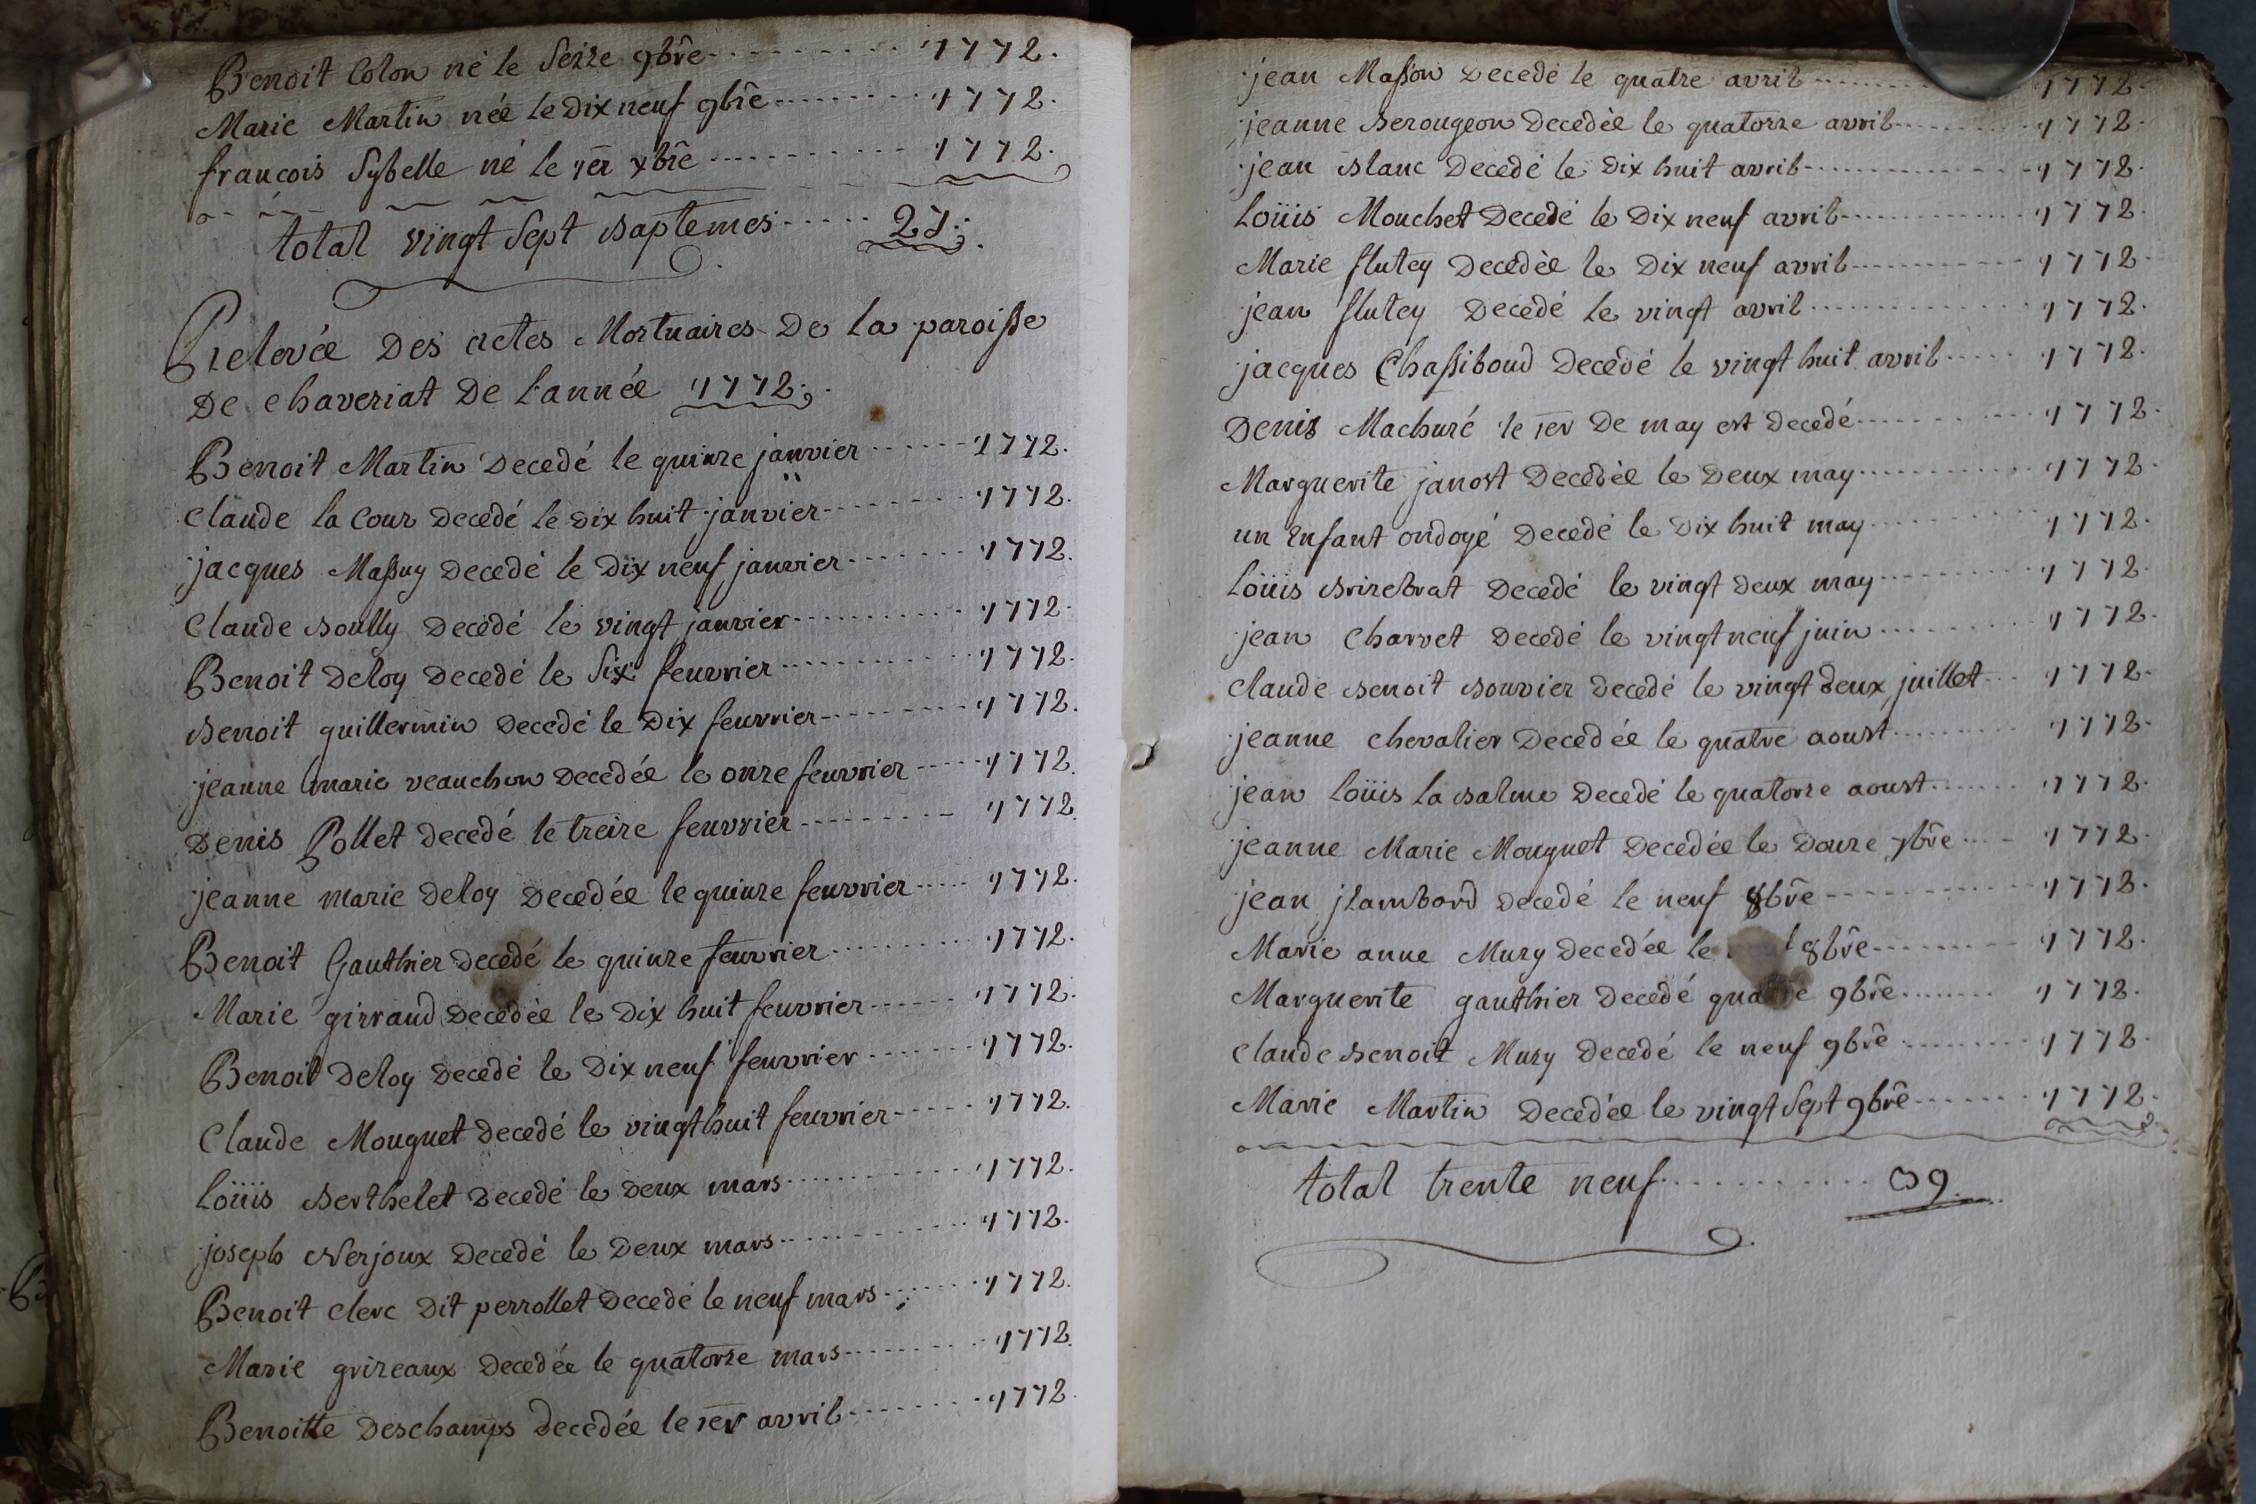 Benoit Colon né le Seize 9bre 1772.
Marie Martin née le Dix neuf 9bre 1772.
francois Sybelle né le 1er xbre 1772.
total vingt Sept Baptemes 27.
Relevée Des actes Mortuaires De la paroisse
De chaveriat De l'année 1772.
Benoit Martin Decedé le quinze janvier 1772.
Claude la Cour Decedé le Dix huit janvier 1772.
jacques Massuy Decedé le Dix neuf janvier 1772.
Claude Boully Decedé le vingt janvier 1772.
Benoit Deloy Decedé le Six feuvrier 1772.
Benoit guillermin Decedé le Dix feuvrier 1772.
jeanne marie veauchon Decedée le onze feuvrier 1772.
Denis Pollet Decedé le treize feuvrier 1772.
jeanne marie Deloy Decedée le quinze feuvrier 1772.
Benoit Gauthier Decedé le quinze feuvrier 1772.
Marie girraud Decedée le Dix huit feuvrier 1772.
Benoit Deloy Decedé le Dix neuf feuvrier 1772.
Claude Monguet Decedé le vingt huit feuvrier 1772.
Loüis Berthelet Decedé le Deux mars 1772.
joseph Nerjoux Decedé le Deux mars 1772.
Benoit clerc Dit perrollet Decedé le neuf mars 1772.
Marie grizeaux Decedée le quatorze mars 1772.
Benoitte Deschamps Decedée le 1er avril 1772.
jean Masson Decedé le quatre avril 1772.
jeanne Berougeon Decedée le quatorze avril 1772.
jean Blanc Decedé le Dix huit avril 1772.
Loüis Mouchet Decedé le Dix neuf avril 1772.
Marie flutey Decedée le Dix neuf avril 1772.
jean flutey Decedé le vingt avril 1772.
jacques Chassiboud Decedé le vingt huit avril 1772.
Denis Machuré le 1er De may est Decedé 1772.
Marguerite janost Decedée le Deux may 1772.
un Enfant ondoyé Decedé le Dix huit may 1772.
Loüis Brizebrat Decedé le vingt Deux may 1772.
jean Charvet Decedé le vingt neuf juin 1772.
Claude Benoit Bouvier Decedé le vingt Deux juillet 1772.
jeanne chevalier Decedée le quatre aoust 1772.
jean Loüis la Balme Decedé le quatorze aoust 1772.
jeanne Marie Monguet Decedée le Douze 7bre 1772.
jean jzambord Decedé le neuf 8bre 1772.
Marie anne Mury Decedée le 8bre 1772.
Marguerite gauthier Decedé quatre 9bre 1772.
Claude Benoit Mury Decedé le neuf 9bre 1772.
Marie Martin Decedée le vingt Sept 9bre 1772.
total trente neuf 39